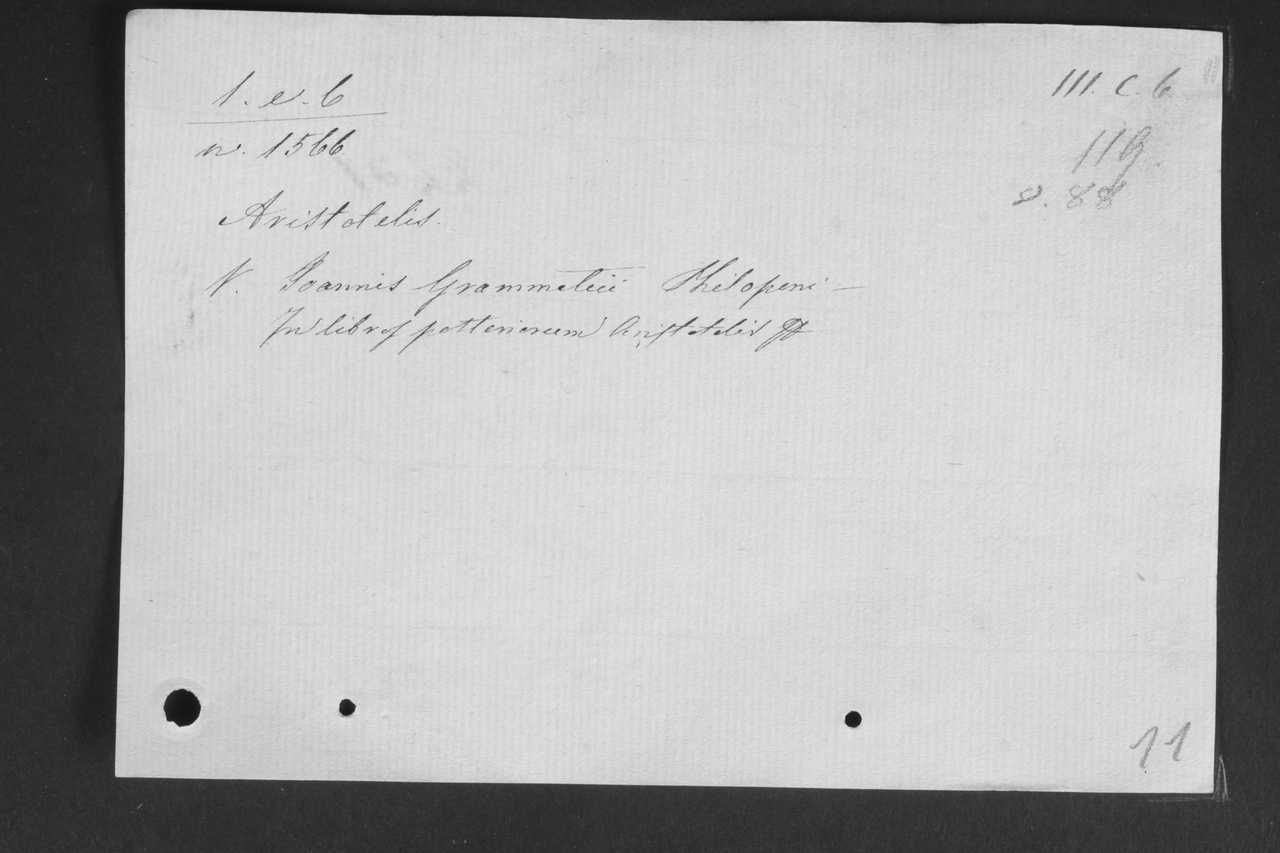 1. e. 6
III. C. 6
n. 1566
11
8. 88
Aristotelis.
V. Joannis Grammatici Philoponi —
In libros posteriorum Aristotelis
11